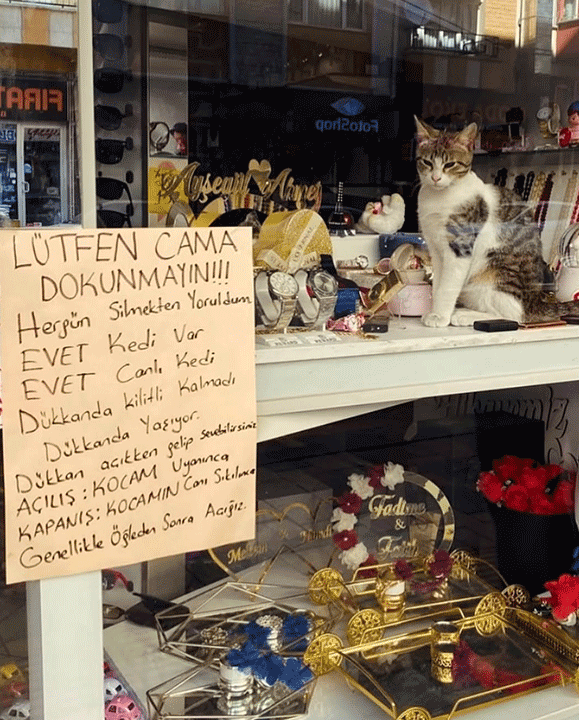 LÜTFEN CAMA
DOKUNMAYIN!!!
Hergün Silmekten Yoruldum
EVET Kedi Var
EVET Canlı Kedi
Dükkanda kilitli Kalmadı
Dükkanda Yaşıyor.
Dükkan açıkken gelip sevebilirsiniz
AÇILIŞ: KOCAM Uyanınca
KAPANIŞ: KOCAMIN Canı Sıkılınca
Genellikle Öğleden Sonra Açığız.
FIRAT
FotoShop
Ayşegül Ahmet
Fadime
&
Fatih